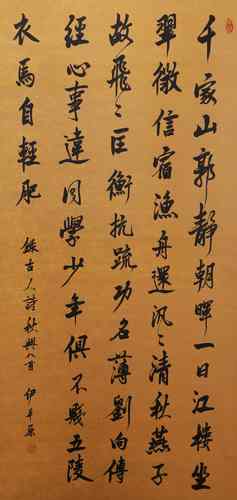 千家山郭靜朝暉一日江樓坐
翠微信宿漁舟還汎〻清秋燕子
故飛〻匡衡抗疏功名薄劉向傳
經心事違同學少年俱不賤五陵
衣馬自輕肥
錄古人詩秋興八首